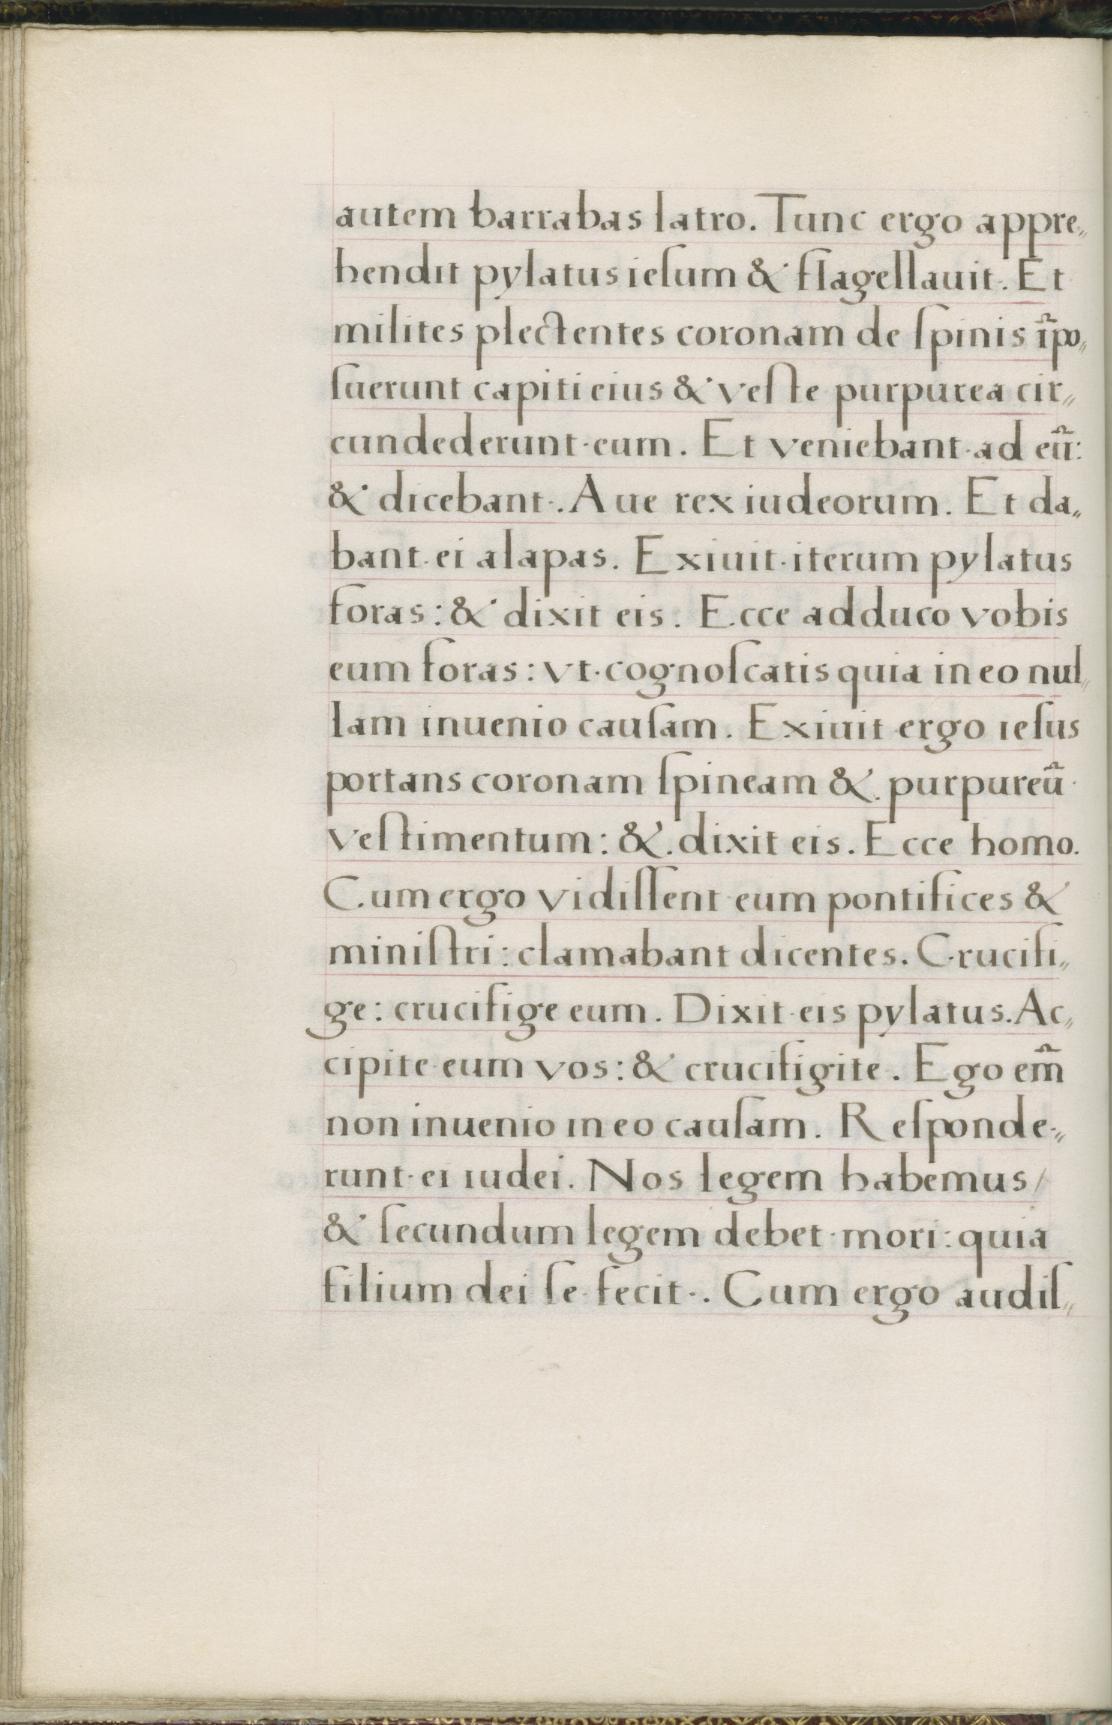 autem barrabas latro. Tunc ergo appre„
hendit pylatus ieſum & flagellauit. Et
milites plectentes coronam de ſpinis īpo„
ſuerunt capiti eius & veſte purpurea cir„
cundederunt eum. Et veniebant ad eū:
& dicebant. Aue rex iudeorum. Et da„
bant ei alapas. Exiuit iterum pylatus
foras: & dixit eis. Ecce adduco vobis
eum foras: vt cognoſcatis quia in eo nul„
lam inuenio cauſam. Exiuit ergo ieſus
portans coronam ſpineam & purpureū
veſtimentum: & dixit eis. Ecce homo.
Cum ergo vidiſſent eum pontifices &
miniſtri: clamabant dicentes. Crucifi„
ge: crucifige eum. Dixit eis pylatus. Ac„
cipite eum vos: & crucifigite. Ego em̄
non inuenio in eo cauſam. Reſponde„
runt ei iudei. Nos legem habemus/
& ſecundum legem debet mori: quia
filium dei ſe fecit. Cum ergo audiſ„